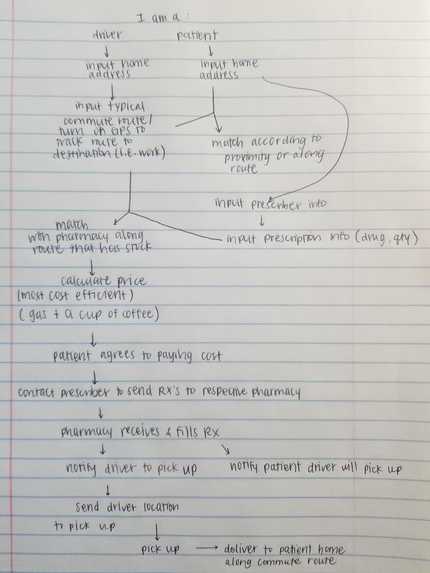 I am a:
driver
patient
input home
address
input home
address
input typical
commute route/
turn on GPS to
track route to
destination (i.e. work)
match according to
proximity or along
route
input prescriber info
match
with pharmacy along
route that has stock
input prescription info (drug, qty)
calculate price
(most cost efficient)
(gas + a cup of coffee)
patient agrees to paying cost
contact prescriber to send Rx's to respective pharmacy
pharmacy receives & fills Rx
notify driver to pick up
notify patient driver will pick up
send driver location
to pick up
pick up
deliver to patient home
along commute route